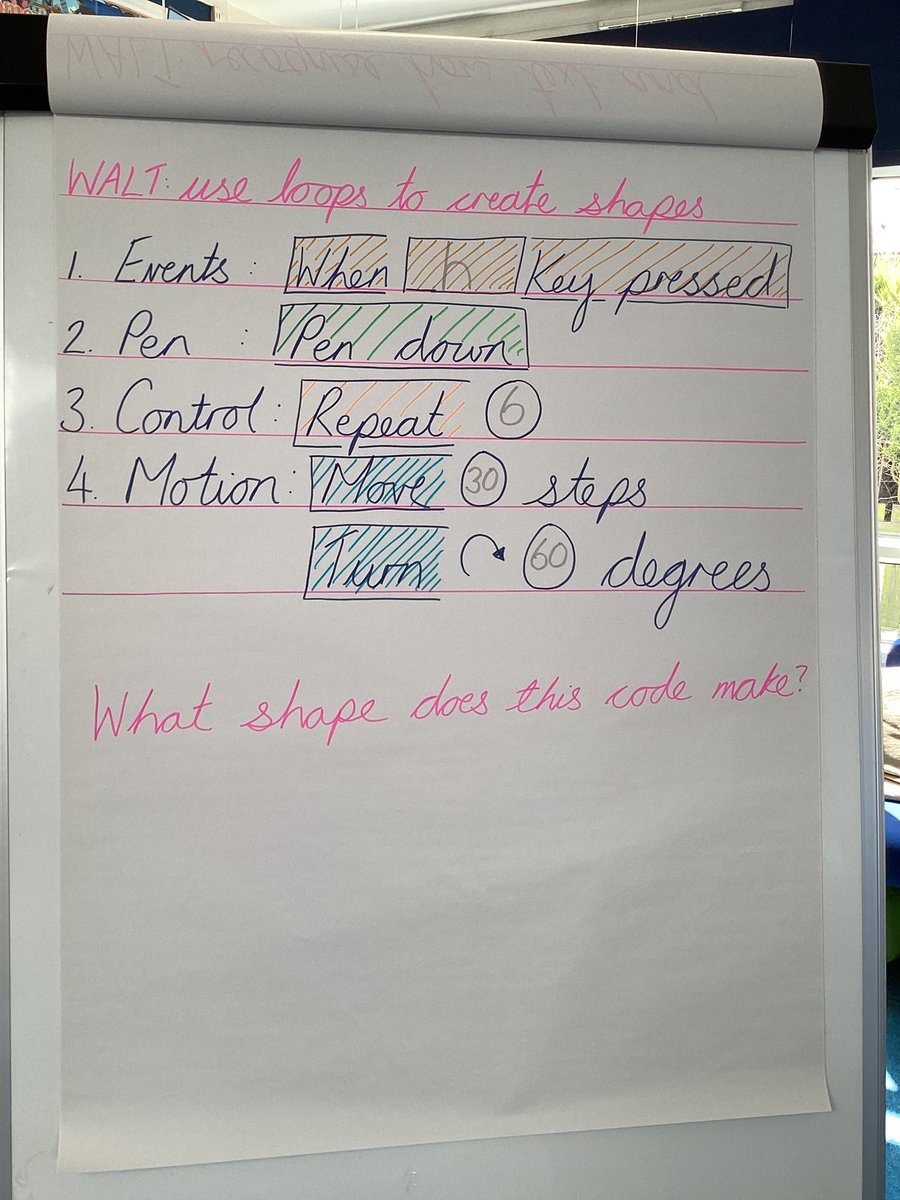 WALT: recognise how text and
WALT: use loops to create shapes
1. Events: When h Key pressed
2. Pen : Pen down
3. Control: Repeat 6
4. Motion: Move 30 steps
Turn 60 degrees
What shape does this code make?